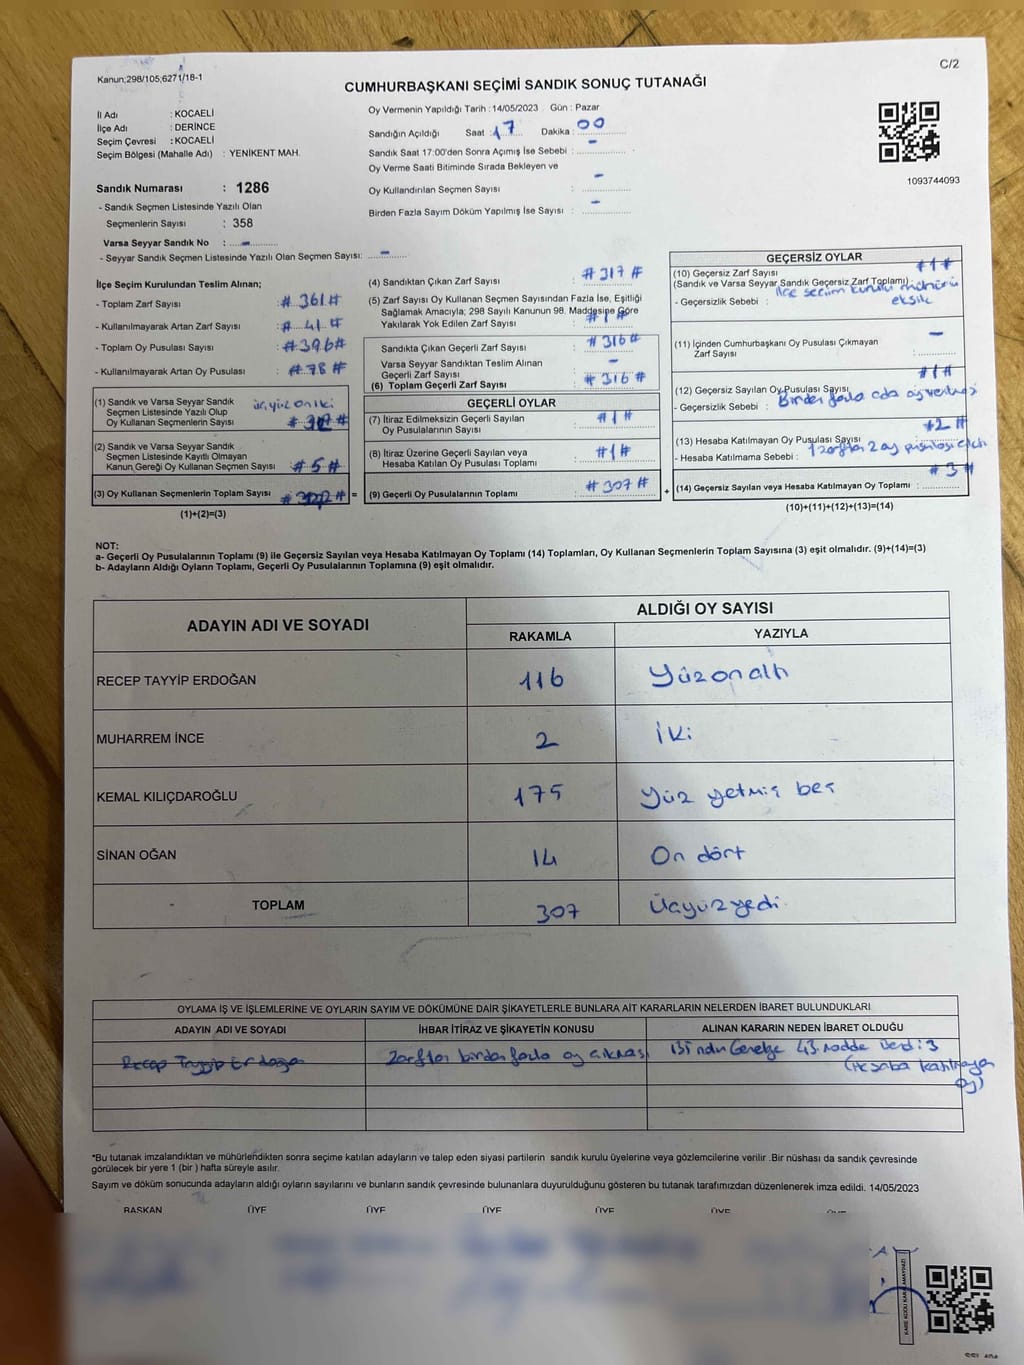 Kanun;298/105;6271/18-1
C/2
CUMHURBAŞKANI SEÇİMİ SANDIK SONUÇ TUTANAĞI
İl Adı : KOCAELİ
İlçe Adı : DERİNCE
Seçim Çevresi : KOCAELİ
Seçim Bölgesi (Mahalle Adı) : YENİKENT MAH.
Sandık Numarası : 1286
- Sandık Seçmen Listesinde Yazılı Olan
Seçmenlerin Sayısı : 358
Varsa Seyyar Sandık No : -
- Seyyar Sandık Seçmen Listesinde Yazılı Olan Seçmen Sayısı: -
Oy Vermenin Yapıldığı Tarih : 14/05/2023 Gün : Pazar
Sandığın Açıldığı Saat : 17 Dakika : 00
Sandık Saat 17:00'den Sonra Açımış İse Sebebi : -
Oy Verme Saati Bitiminde Sırada Bekleyen ve
Oy Kullandırılan Seçmen Sayısı : -
Birden Fazla Sayım Döküm Yapılmış İse Sayısı : -
1093744093
İlçe Seçim Kurulundan Teslim Alınan;
- Toplam Zarf Sayısı : # 361 #
- Kullanılmayarak Artan Zarf Sayısı : # 41 #
- Toplam Oy Pusulası Sayısı : # 396 #
- Kullanılmayarak Artan Oy Pusulası : # 78 #
(1) Sandık ve Varsa Seyyar Sandık
Seçmen Listesinde Yazılı Olup
Oy Kullanan Seçmenlerin Sayısı
üçyüz oniki
(2) Sandık ve Varsa Seyyar Sandık
Seçmen Listesinde Kayıtlı Olmayan
Kanun Gereği Oy Kullanan Seçmen Sayısı # 5 #
(3) Oy Kullanan Seçmenlerin Toplam Sayısı
(1)+(2)=(3)
(4) Sandıktan Çıkan Zarf Sayısı : # 317 #
(5) Zarf Sayısı Oy Kullanan Seçmen Sayısından Fazla İse, Eşitliği
Sağlamak Amacıyla; 298 Sayılı Kanunun 98. Maddesine Göre
Yakılarak Yok Edilen Zarf Sayısı : # 1 #
Sandıkta Çıkan Geçerli Zarf Sayısı : # 316 #
Varsa Seyyar Sandıktan Teslim Alınan
Geçerli Zarf Sayısı : -
(6) Toplam Geçerli Zarf Sayısı : # 316 #
GEÇERLİ OYLAR
(7) İtiraz Edilmeksizin Geçerli Sayılan
Oy Pusulalarının Sayısı : # 1 #
(8) İtiraz Üzerine Geçerli Sayılan veya
Hesaba Katılan Oy Pusulası Toplamı : # 1 #
= (9) Geçerli Oy Pusulalarının Toplamı : # 307 # +
GEÇERSİZ OYLAR
(10) Geçersiz Zarf Sayısı # 1 #
(Sandık ve Varsa Seyyar Sandık Geçersiz Zarf Toplamı) :
- Geçersizlik Sebebi : İlçe seçim kurulu mührünü
eksik
(11) İçinden Cumhurbaşkanı Oy Pusulası Çıkmayan
Zarf Sayısı : -
(12) Geçersiz Sayılan Oy Pusulası Sayısı # 1 #
- Geçersizlik Sebebi : Birden fazla oda oy verilmesi
(13) Hesaba Katılmayan Oy Pusulası Sayısı # 2 #
- Hesaba Katılmama Sebebi : 1 zarftan 2 oy pusulası çıktı
(14) Geçersiz Sayılan veya Hesaba Katılmayan Oy Toplamı : # 3 #
(10)+(11)+(12)+(13)=(14)
NOT:
a- Geçerli Oy Pusulalarının Toplamı (9) ile Geçersiz Sayılan veya Hesaba Katılmayan Oy Toplamı (14) Toplamları, Oy Kullanan Seçmenlerin Toplam Sayısına (3) eşit olmalıdır. (9)+(14)=(3)
b- Adayların Aldığı Oyların Toplamı, Geçerli Oy Pusulalarının Toplamına (9) eşit olmalıdır.
ADAYIN ADI VE SOYADI ALDIĞI OY SAYISI
RAKAMLA YAZIYLA
RECEP TAYYİP ERDOĞAN 116 Yüzonaltı
MUHARREM İNCE 2 İki
KEMAL KILIÇDAROĞLU 175 Yüz yetmiş beş
SİNAN OĞAN 14 On dört
TOPLAM 307 Üçyüzyedi
OYLAMA İŞ VE İŞLEMLERİNE VE OYLARIN SAYIM VE DÖKÜMÜNE DAİR ŞİKAYETLERLE BUNLARA AİT KARARLARIN NELERDEN İBARET BULUNDUKLARI
ADAYIN ADI VE SOYADI İHBAR İTİRAZ VE ŞİKAYETİN KONUSU ALINAN KARARIN NEDEN İBARET OLDUĞU
Recep Tayyip Erdoğan Zarftan birden fazla oy çıkması 135 nolu Genelge 43. Madde Bend: 3
(Hesaba katılmayan
oy)
*Bu tutanak imzalandıktan ve mühürlendikten sonra seçime katılan adayların ve talep eden siyasi partilerin sandık kurulu üyelerine veya gözlemcilerine verilir .Bir nüshası da sandık çevresinde
görülecek bir yere 1 (bir ) hafta süreyle asılır.
Sayım ve döküm sonucunda adayların aldığı oyların sayılarını ve bunların sandık çevresinde bulunanlara duyurulduğunu gösteren bu tutanak tarafımızdan düzenlenerek imza edildi. 14/05/2023
BAŞKAN ÜYE ÜYE ÜYE ÜYE ÜYE ÜYE
KARE KODU KARALAMAYINIZ!